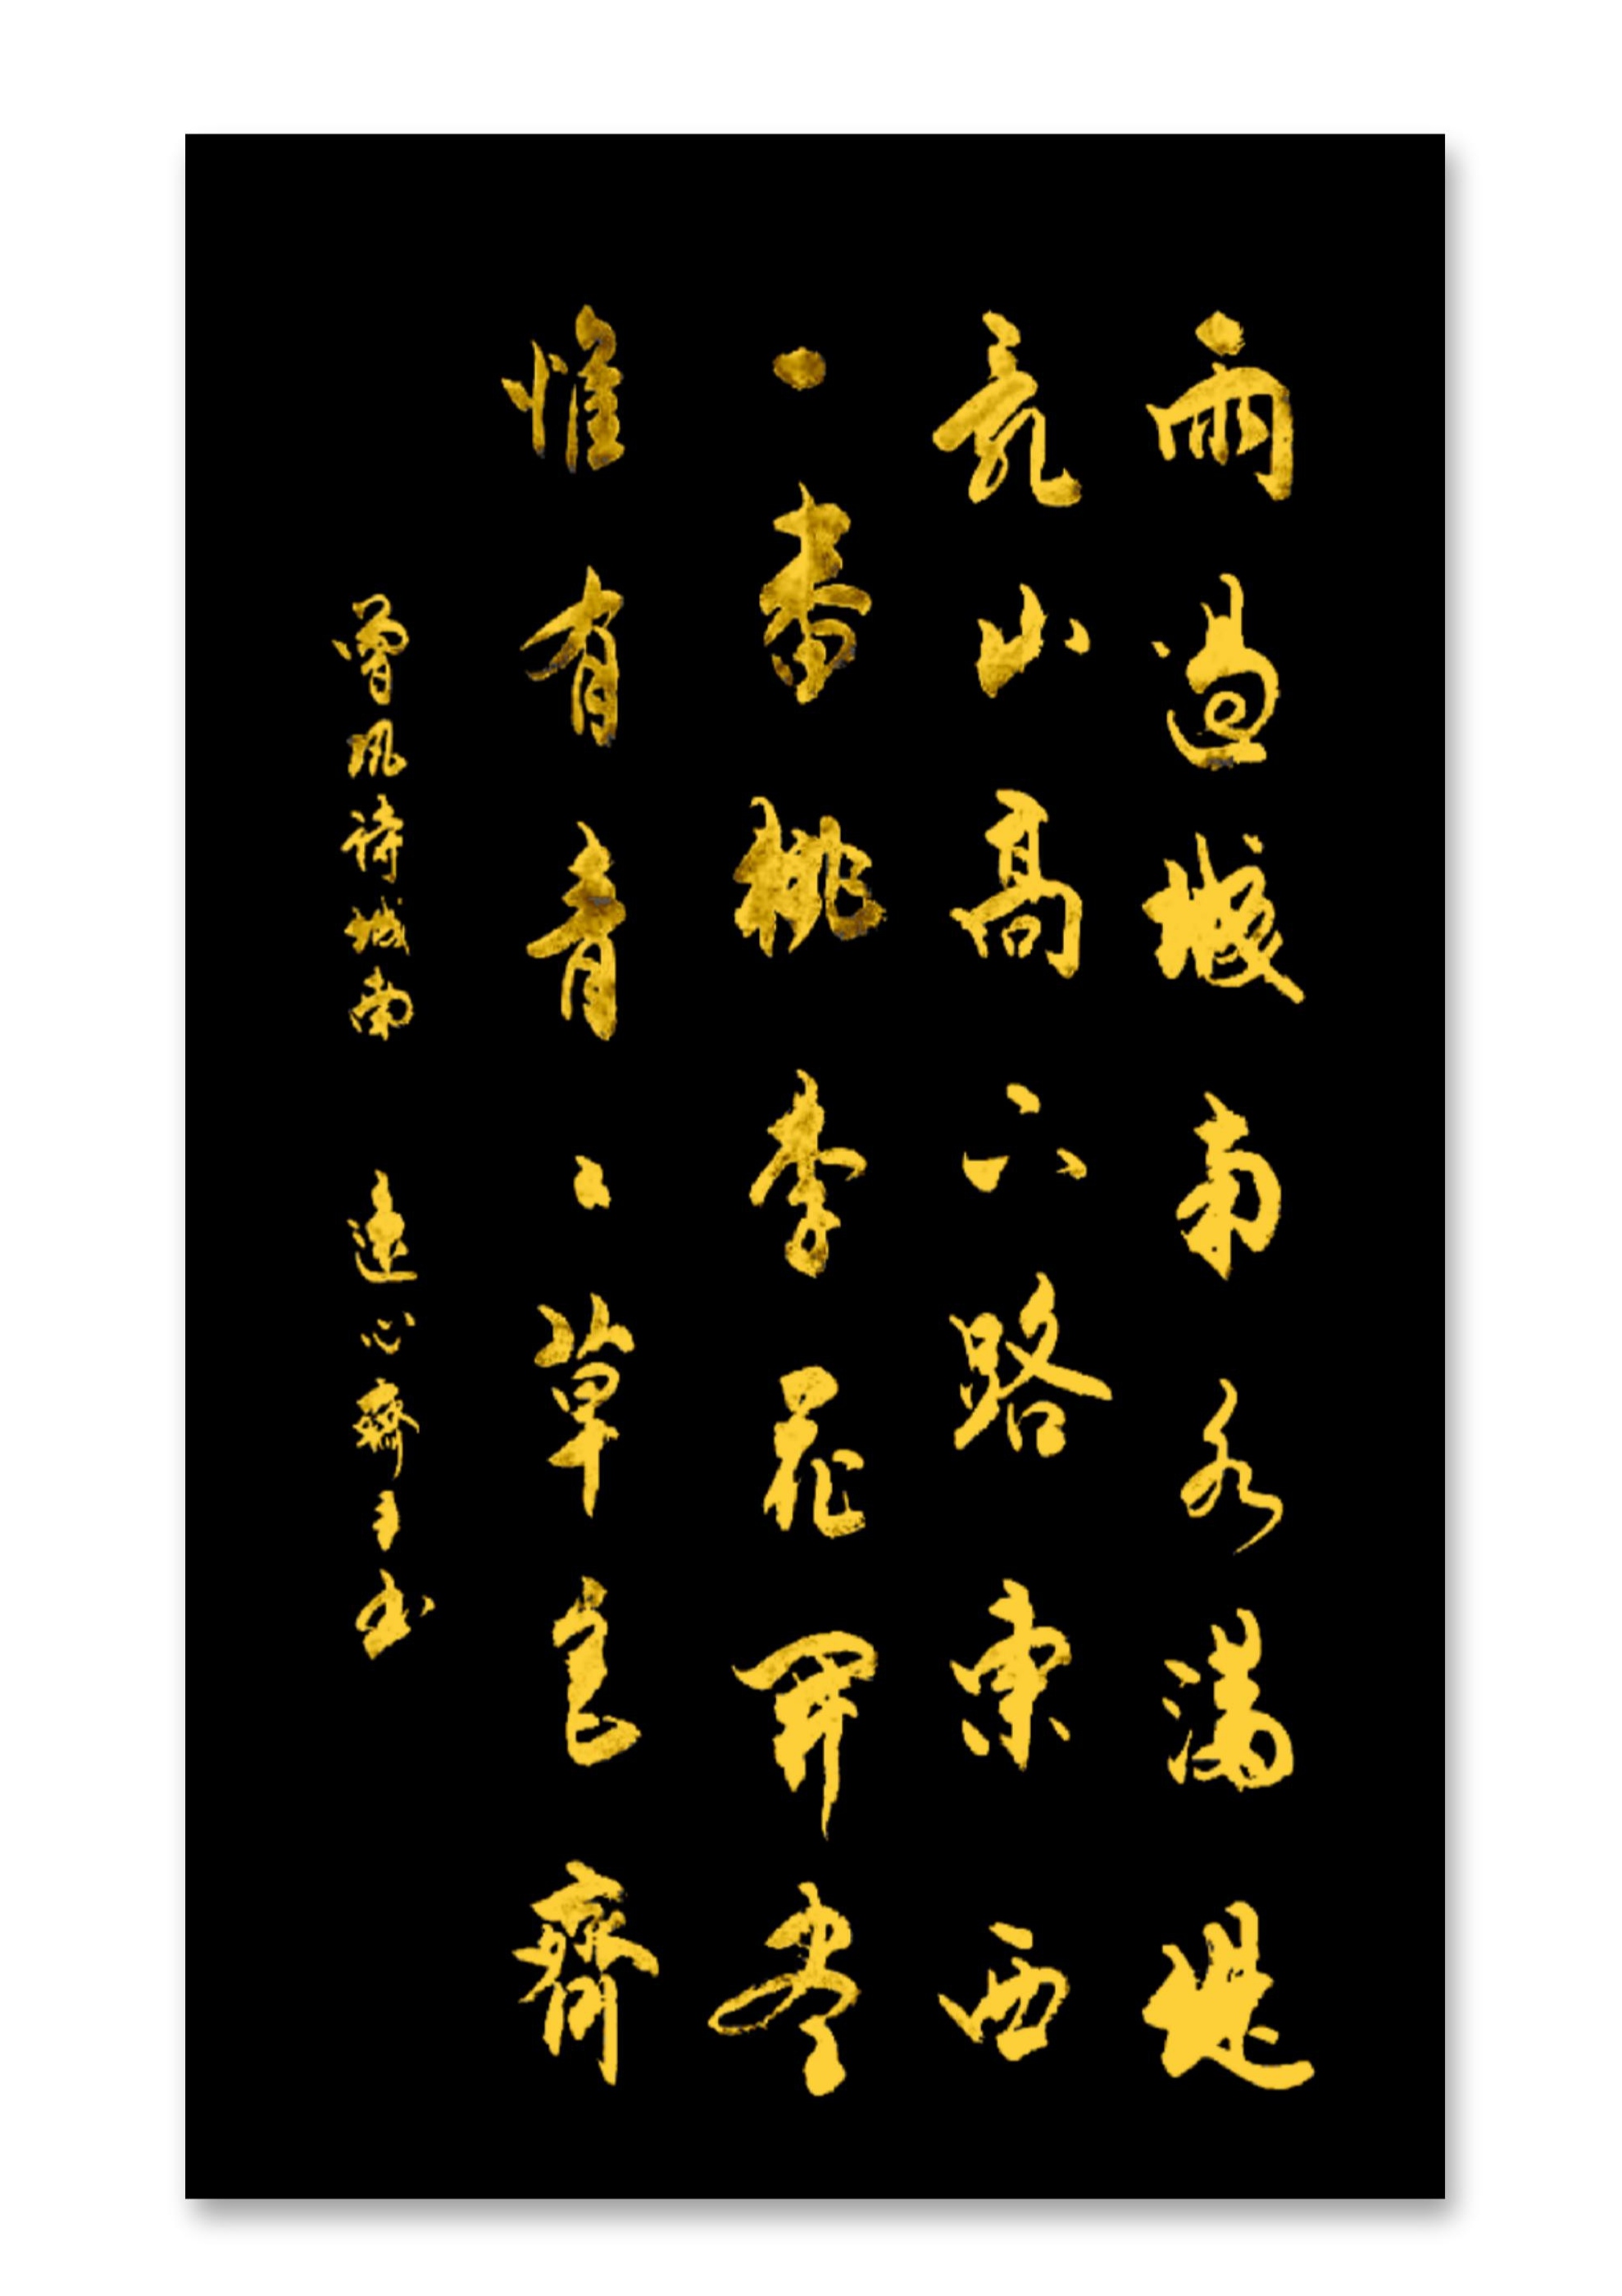 雨過城南水满堤
乱山高下路東西
一番桃李花開尽
惟有青〻草色齊
曾風诗城南 遠心齋主书